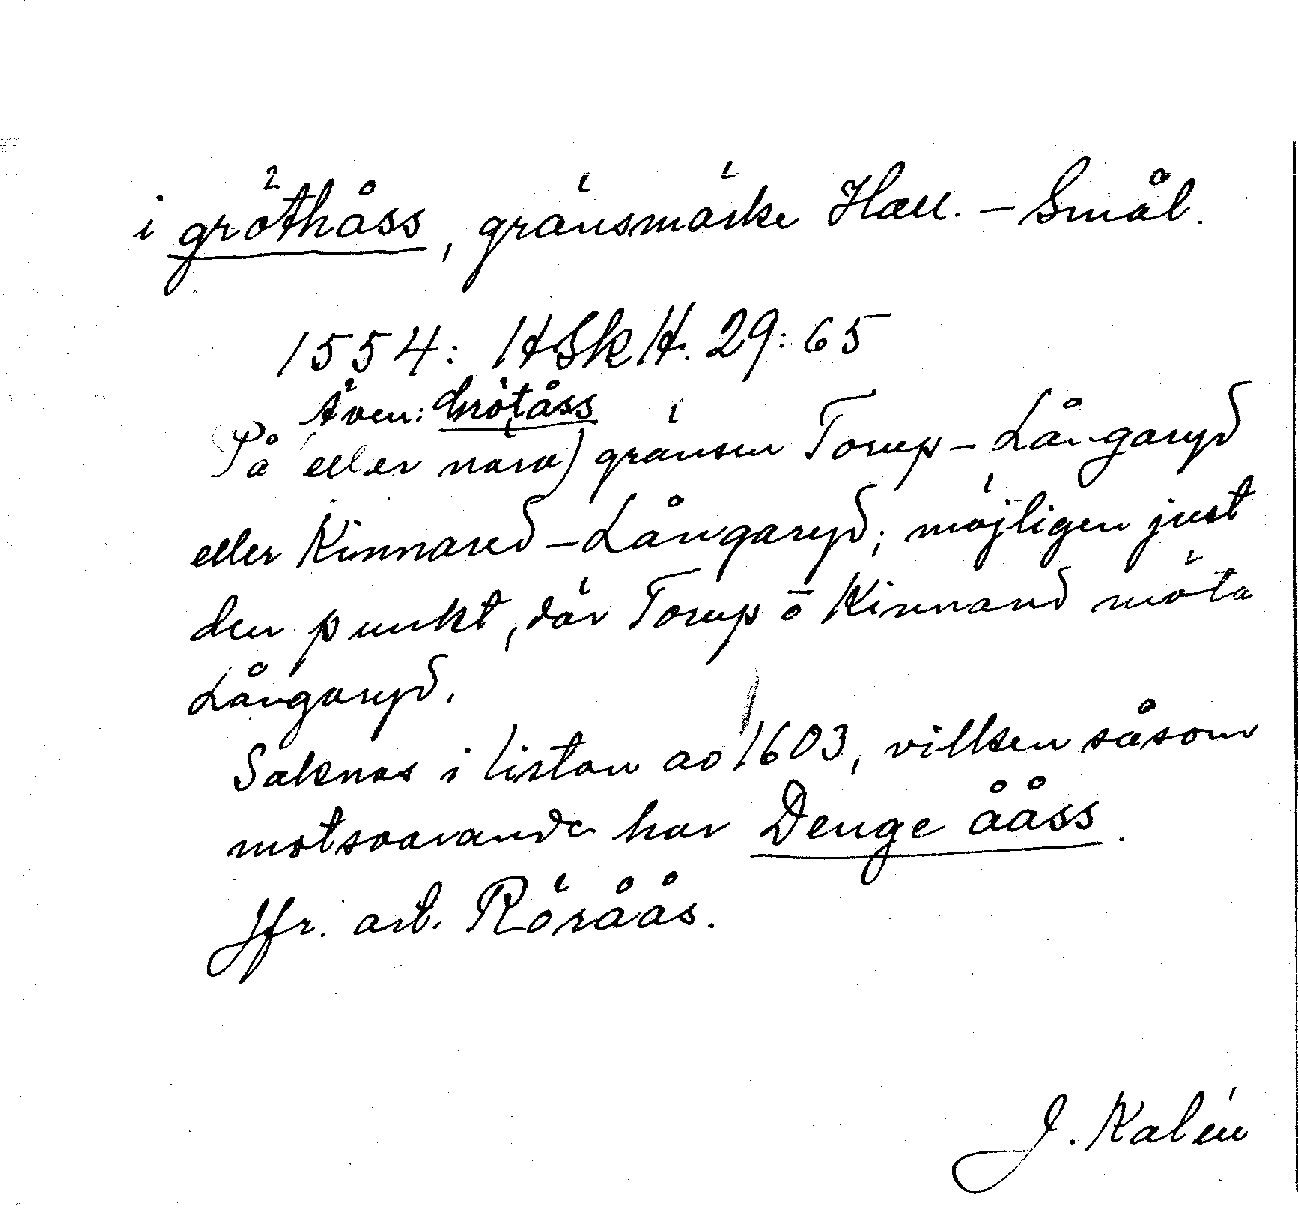 i gröthåss, gränsmärke Hall. – Smål.
1554: HSkH. 29:65
Även: Grötåss
På (eller nära) gränsen Torup – Långaryd
eller Kinnared – Långaryd; möjligen just
den punkt, där Torup o Kinnared möta
Långaryd.
Saknas i listan ao 1603, vilken såsom
motsvarande har Denge ååss.
Jfr. art. Röråås.
J. Kalén